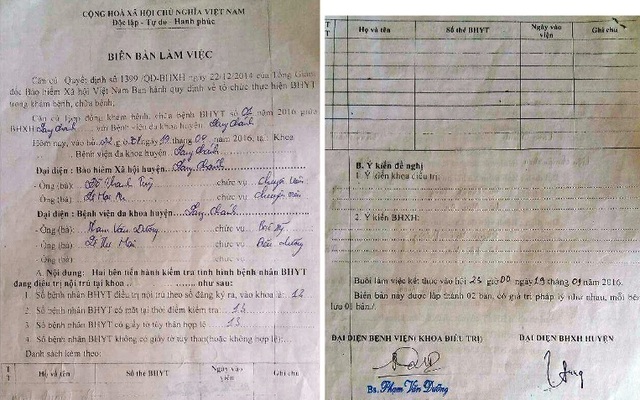 CỘNG HOÀ XÃ HỘI CHỦ NGHĨA VIỆT NAM
Độc lập - Tự do - Hạnh phúc
BIÊN BẢN LÀM VIỆC
Căn cứ Quyết định số 1399 /QĐ-BHXH ngày 22-12-2014 của Tổng Giám
đốc Bảo hiểm Xã hội Việt Nam Ban hành quy định về tổ chức thực hiện BHYT
trong khám bệnh, chữa bệnh.
Căn cứ Hợp đồng khám bệnh, chữa bệnh BHYT số 01 năm 2016 giữa
BHXH với Bệnh viện đa khoa huyện
Hôm nay, vào hồi giờ ngày 19 tháng 2016, tại Khoa
Bệnh viện đa khoa huyện
Đại diện : Bảo hiểm Xã hội huyện
- Ông (bà) chức vụ Chuyên viên
- Ông (bà) chức vụ Chuyên viên
Đại diện : Bệnh viện đa khoa huyện
- Ông (bà) Phạm Văn Dưỡng chức vụ
- Ông (bà) chức vụ Điều dưỡng
A. Nội dung: Hai bên tiến hành kiểm tra tình hình bệnh nhân BHYT
đang điều trị nội trú tại khoa như sau:
1. Số bệnh nhân BHYT điều trị nội trú theo sổ đăng ký ra, vào khoa là: 12
2. Số bệnh nhân BHYT có mặt tại thời điểm kiểm tra
3. Số bệnh nhân BHYT có giấy tờ tùy thân hợp lệ
4. Số bệnh nhân BHYT không có giấy tờ tùy thân(hoặc không hợp lệ):
Danh sách kèm theo:
Họ và tên Số thẻ BHYT Ngày vào viện Ghi chú
Họ và tên Số thẻ BHYT Ngày vào viện Ghi chú
B. Ý kiến đề nghị
1. Ý kiến khoa điều trị:
2. Ý kiến BHXH:
Buổi làm việc kết thúc vào hồi 23 giờ 00 ngày 19 tháng 01 năm 2016.
Biên bản này được lập thành 02 bản, có giá trị pháp lý như nhau, mỗi bên
lưu 01 bản./.
ĐẠI DIỆN BỆNH VIỆN( KHOA ĐIỀU TRỊ) ĐẠI DIỆN BHXH HUYỆN
Bs. Phạm Văn Dưỡng